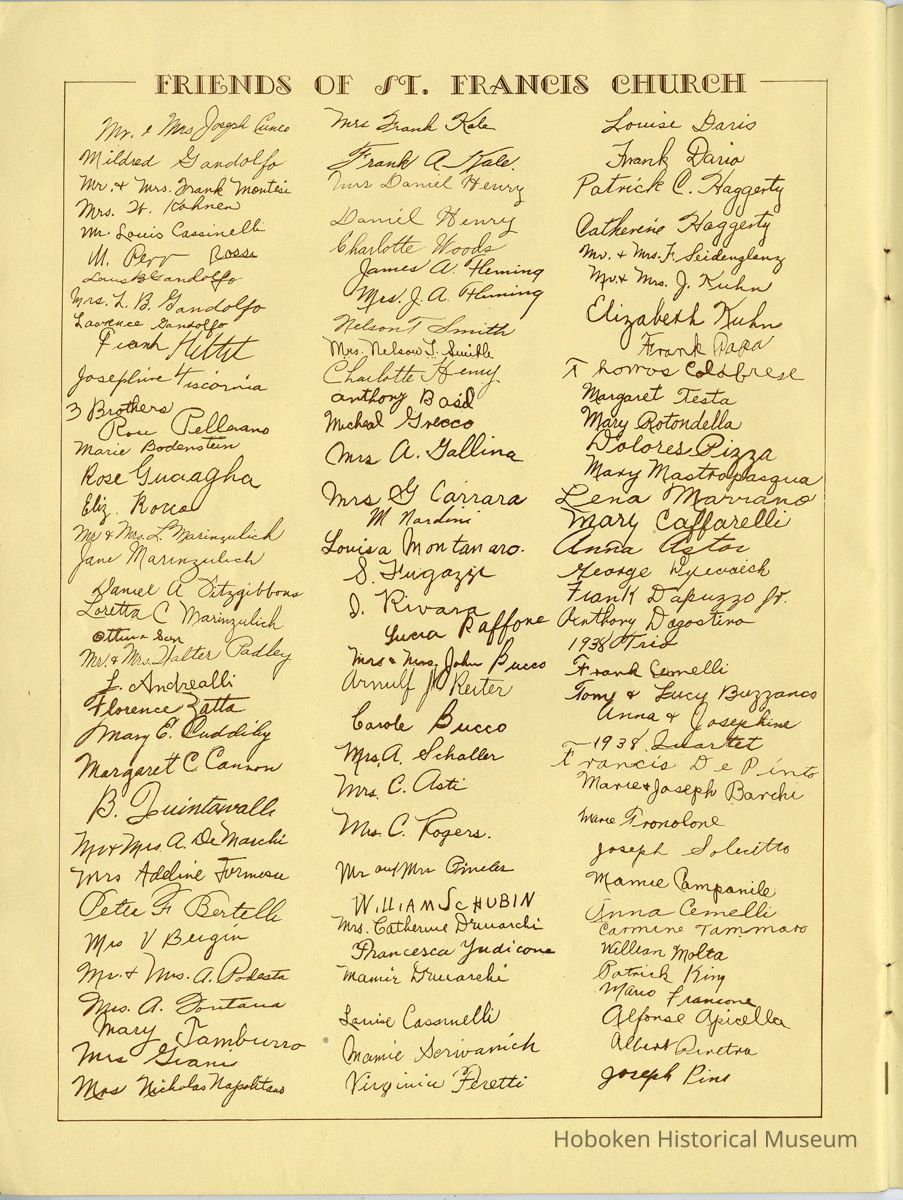 FRIENDS OF ST. FRANCIS CHURCH
Mr. & Mrs Joseph Cuneo
Mildred Gandolfo
Mr. & Mrs. Frank Montesi
Mrs. W. Kohnen
Mr. Louis Cassinelli
M. Rossi
Louis B Gandolfo
Mrs. L. B. Gandolfo
Lawrence Gandolfo
Frank
Josephine Tiscornia
3 Brothers
Rose Pellarano
Marie Bodenstein
Rose Guaagha
Eliz. Rocco
Mr & Mrs. L. Marinzulich
Jane Marinzulich
Daniel A Fitzgibbons
Loretta C Marinzulich
Mr. & Mrs. Walter Padley
L. Andrealli
Florence Zatta
Mary E. Cuddihy
Margaret C Cannon
B. Quintavalli
Mr & Mrs. A. De Maschi
Mrs Adeline
Peter F Bertelli
Mrs V Bergin
Mr. & Mrs. A. Podesta
Mrs. A. Fontana
Mary Tamburro
Mrs Giani
Mrs Nicholas Napolitano
Mrs Frank Kale
Frank A. Kale
Mrs Daniel Henry
Daniel Henry
Charlotte Woods
James A. Fleming
Mrs. J. A. Fleming
Nelson T Smith
Mrs. Nelson T. Smith
Charlotte Henry
Anthony Basil
Micheal Grecco
Mrs A. Gallina
Mrs G Carrara
M Nardini
Louisa Montanaro.
S. Fugazzi
J. Rivara
Lucia Raffone
Mrs & Mrs. John Bucco
Arnulf Reiter
Carole Bucco
Mrs. A. Schaller
Mrs. C. Asti
Mrs. C. Rogers.
Mr and Mrs
WILLIAM SCHUBIN
Mrs. Catherine Druarchi
Francesca Yudicone
Mamie Druarchi
Louise Cassinelli
Mamie Scrivanich
Virginia Peretti
Louise Dario
Frank Dario
Patrick C. Haggerty
Catherine Haggerty
Mr. & Mrs. F. Seidenglanz
Mr & Mrs. J. Kuhn
Elizabeth Kuhn
Frank Papa
Thomas Colabrese
Margaret Testa
Mary Rotondella
Dolores Pizza
Mary Mastropasqua
Lena Marrano
Mary Caffarelli
Anna Astor
George
Frank Dapuzzo Jr.
Anthony Dagostino
1938 Trio
Frank Cemelli
Tony & Lucy Buzzanco
Anna & Josephine
1938 Quartet
Francis DePinto
Marie & Joseph Barchi
Marie Fronolone
Joseph Solecitto
Mamie Campanile
Anna Cemelli
Carmine Tammaro
William Molta
Patrick King
Mario Francone
Alfonse Apicella
Albert Pinetra
Joseph Pino
Hoboken Historical Museum